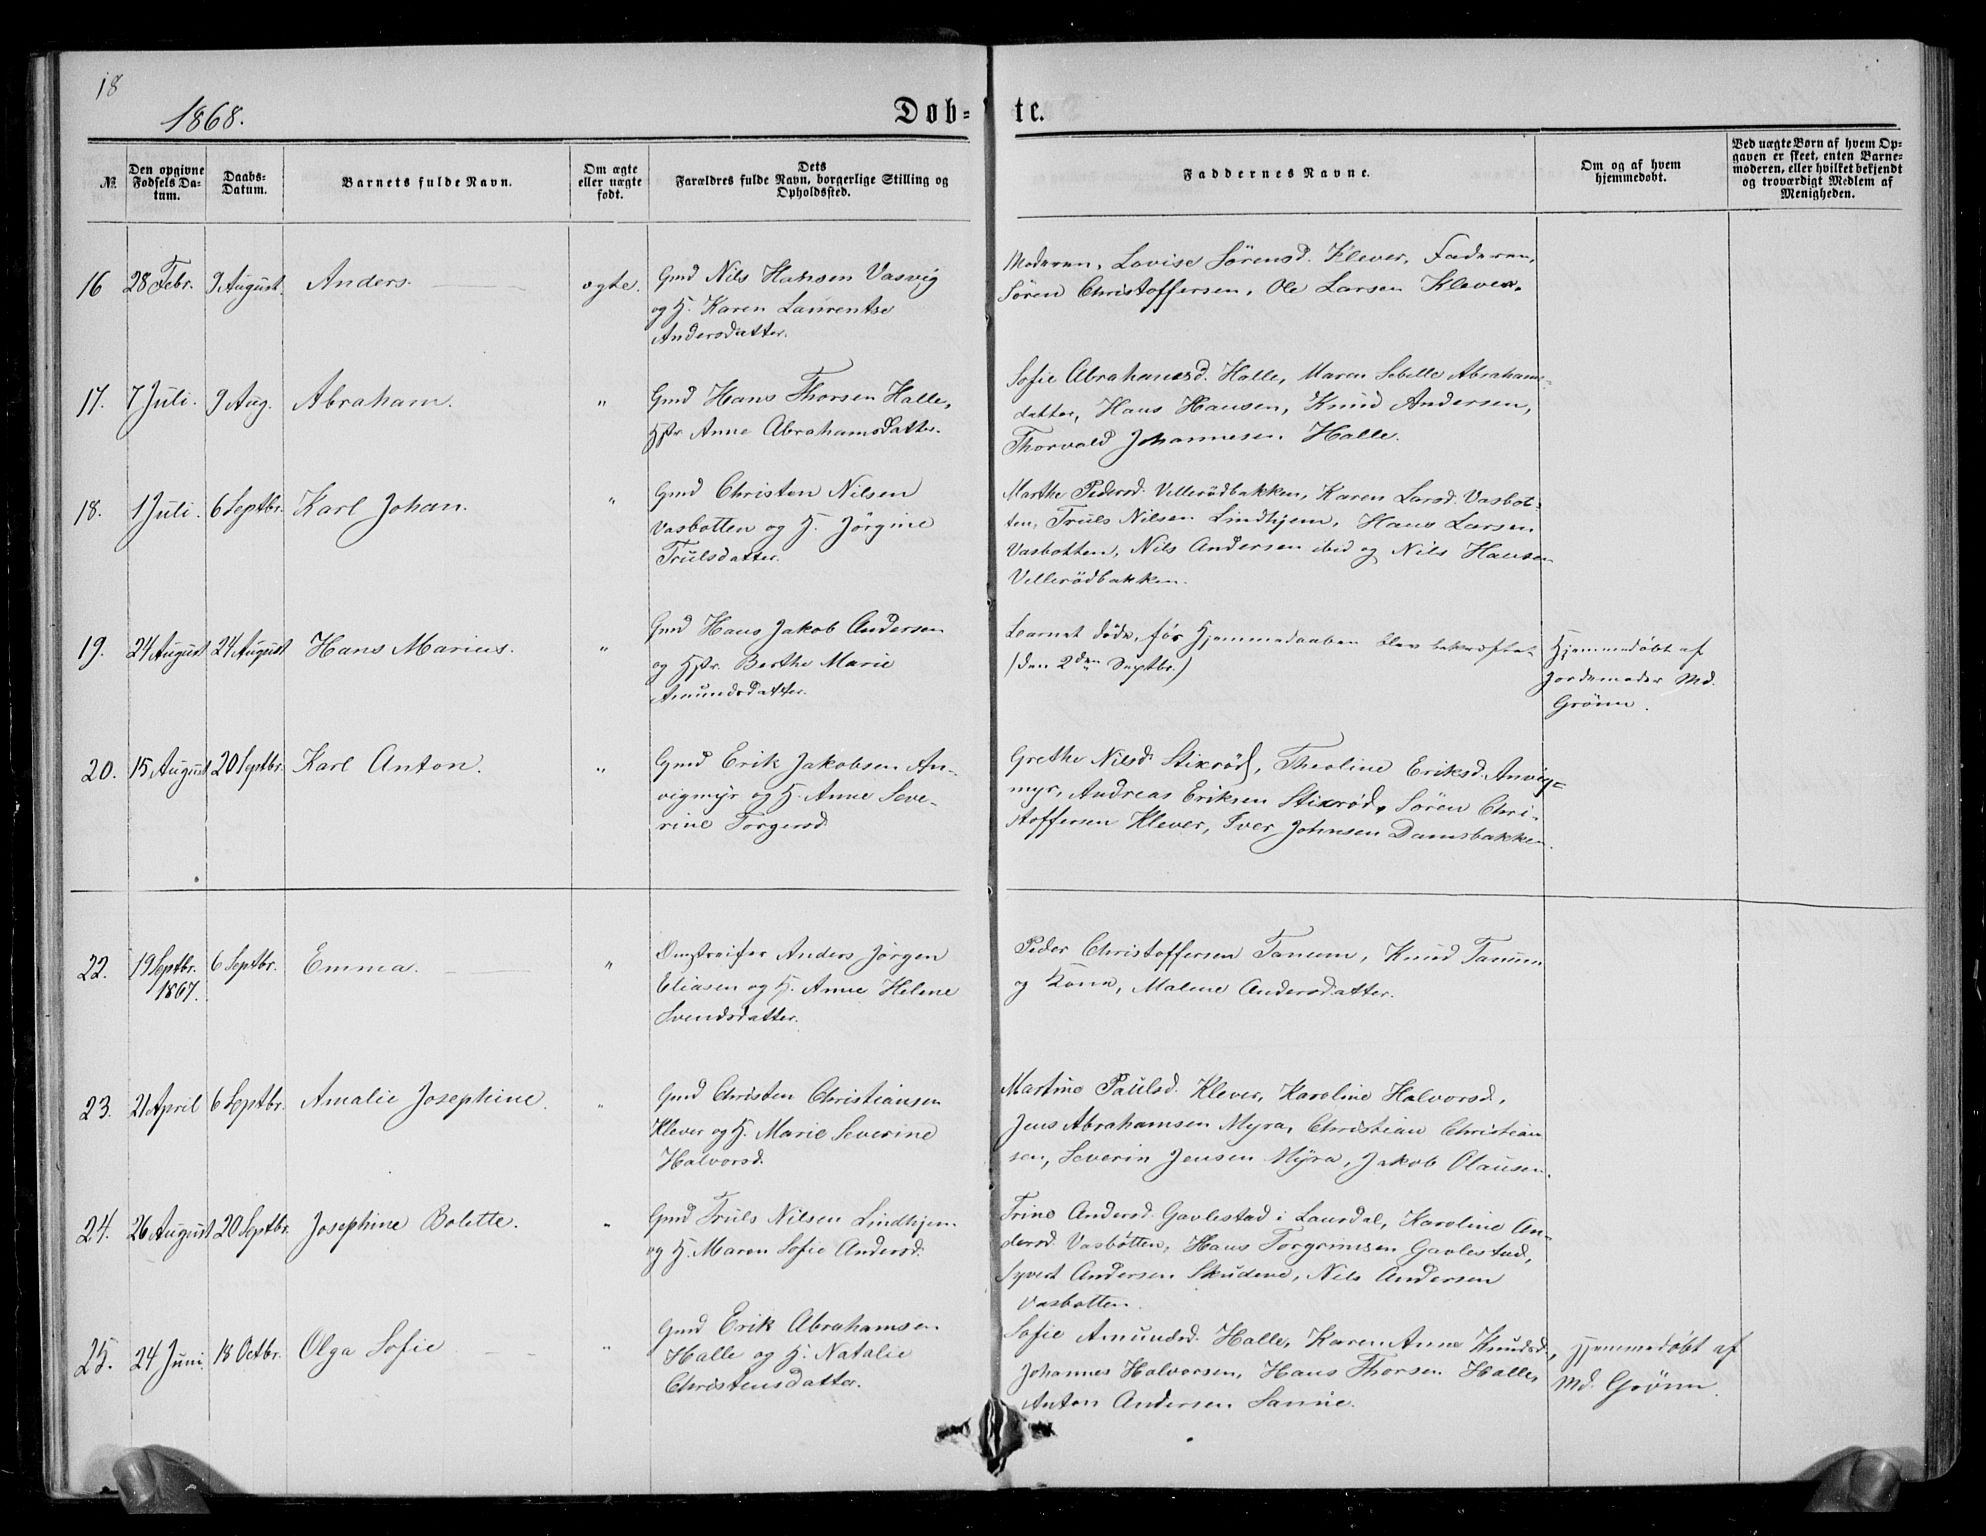 18
1868.
Døb-te.
№
Den opgivne Fødsels Da-tum.
Daabs-Datum.
Barnets fulde Navn.
Om ægte eller uægte født.
Dets Forældres fulde Navn, borgerlige Stilling og Opholdssted.
Faddernes Navne.
Om og af hvem hjemmedøbt.
Ved uægte Børn af hvem Op-gaven er skeet, enten Barne-moderen, eller hvilket bekjendt og troværdigt Medlem af Menigheden.
16 28 Febr. 9 August. Anders. ægte.
Gmd Nils Hansen Vasvig
og H. Karen Laurentse
Andersdatter.
Moderen, Lovise Sørensd. Klever, Faderen,
Søren Christoffersen, Ole Larsen Klever.
17. 7 Juli. 9 Aug. Abraham. "
Gmd Hans Thorsen Halle,
Hstr Anne Abrahamsdatter.
Sofie Abrahamsd. Halle, Maren Sebelle Abrahams-
datter, Hans Hansen, Knud Andersen,
Thorvald Johannesen Halle.
18. 1 Juli. 6 Septbr. Karl Johan. "
Gmd Christen Nilsen
Vasbotten og H. Jørgine
Trulsdatter.
Marthe Pedersd. Vellerödbakken, Karen Larsd. Vasbot-
ten, Truls Nilsen Lindhjem, Hans Larsen
Vasbotten, Nils Andersen ibid og Nils Hansen
Vellerödbakken.
19. 24 August 24 August Hans Marius. "
Gmd Hans Jakob Andersen
og Hstr. Berthe Marie
Amundsdatter.
Barnet døde, før Hjemmedaaben blev bekræftet
(den 2den Septbr.)
Hjemmedøbt af
Jordemoder Md.
Grönn.
20. 15 August 20 Septbr. Karl Anton. "
Gmd Erik Jakobsen An-
vigmyr og H. Anne Seve-
rine Torgersd.
Grethe Nilsd. Stixrød, Theoline Eriksd. Anvig-
myr, Andreas Eriksen Stixrød, Søren Chri-
stoffersen Klever, Iver Johnsen Damsbakken.
22. 19 Septbr. 1867. 6 Septbr. Emma. "
Omstreifer Anders Jørgen
Eliasen og H. Anne Helene
Svendsdatter.
Peder Christoffersen Tanum, Knud Tanum
og Kone, Malene Andersdatter.
23. 21 April 6 Septbr. Amalie Josephine. "
Gmd Christen Christiansen
Klever og H. Marie Severine
Halvorsd.
Martine Paulsd. Klever, Karoline Halvorsd,
Jens Abrahamsen Myra, Christian Christian-
sen, Severin Jensen Myra, Jakob Olausen.
24. 26 August 20 Septbr. Josephine Bolette. "
Gmd Truls Nilsen Lindhjem
og H. Maren Sofie Andersd.
Trine Andersd. Gavlestad i Laurdal, Karoline An-
dersd. Vasbotten, Hans Torgrimsen Gavlestad,
Syvert Andersen Skudene, Nils Andersen
Vasbotten.
25. 24 Juni. 18 Octbr. Olga Sofie "
Gmd Erik Abrahamsen
Halle og H. Natalie
Christensdatter.
Sofie Amundsd. Halle, Karen Anne Knudsd.,
Johannes Halvorsen, Hans Thorsen Halle,
Anton Andersen Sanne.
Hjemmedøbt af
Md. Grönn.